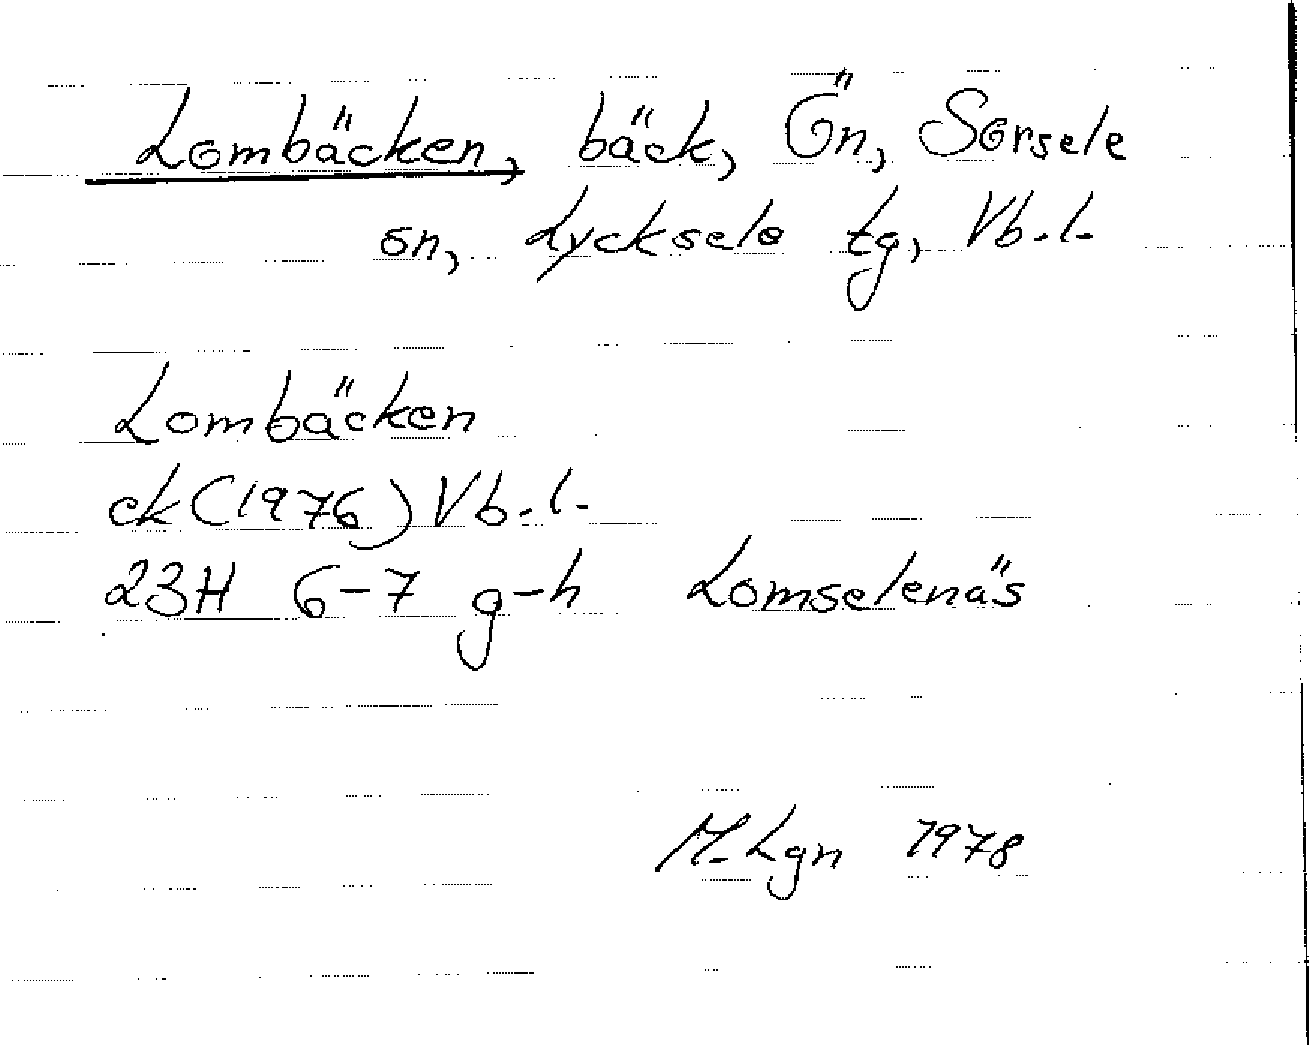 Lombäcken, bäck, Ön, Sorsele
sn, Lycksele tg, Vb.l.
Lombäcken
ek (1976) Vb.l.
23H 6-7 g-h Lomselenäs
M.Lgn 1978